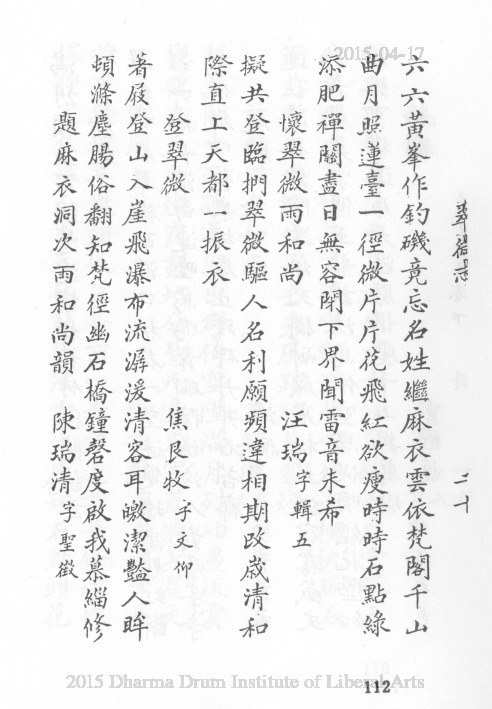 2015-04-17
翠微志
二十
六六黃峯作釣磯竟忘名姓繼麻衣雲依梵閣千山
曲月照蓮臺一徑微片片花飛紅欲瘦時時石點綠
添肥禪關盡日無容閉下界聞雷音未希
懷翠微雨和尚 汪瑞字輯五
擬共登臨捫翠微驅人名利願頻違相期改歲清和
際直上天都一振衣
登翠微 焦艮牧字文仰
著屐登山入崖飛瀑布流潺湲清容耳皦潔豔人眸
頓滌塵腸俗翻知梵徑幽石橋鐘磬度啟我慕緇修
題麻衣洞次雨和尚韻 陳瑞清字聖徵
2015 Dharma Drum Institute of Liberal Arts
112